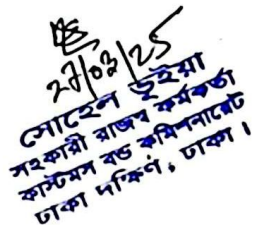 27/03/25
সোহেল ভূঁইয়া
সহকারী রাজস্ব কর্মকর্তা
কাস্টমস বন্ড কমিশনারেট
ঢাকা দক্ষিণ, ঢাকা।